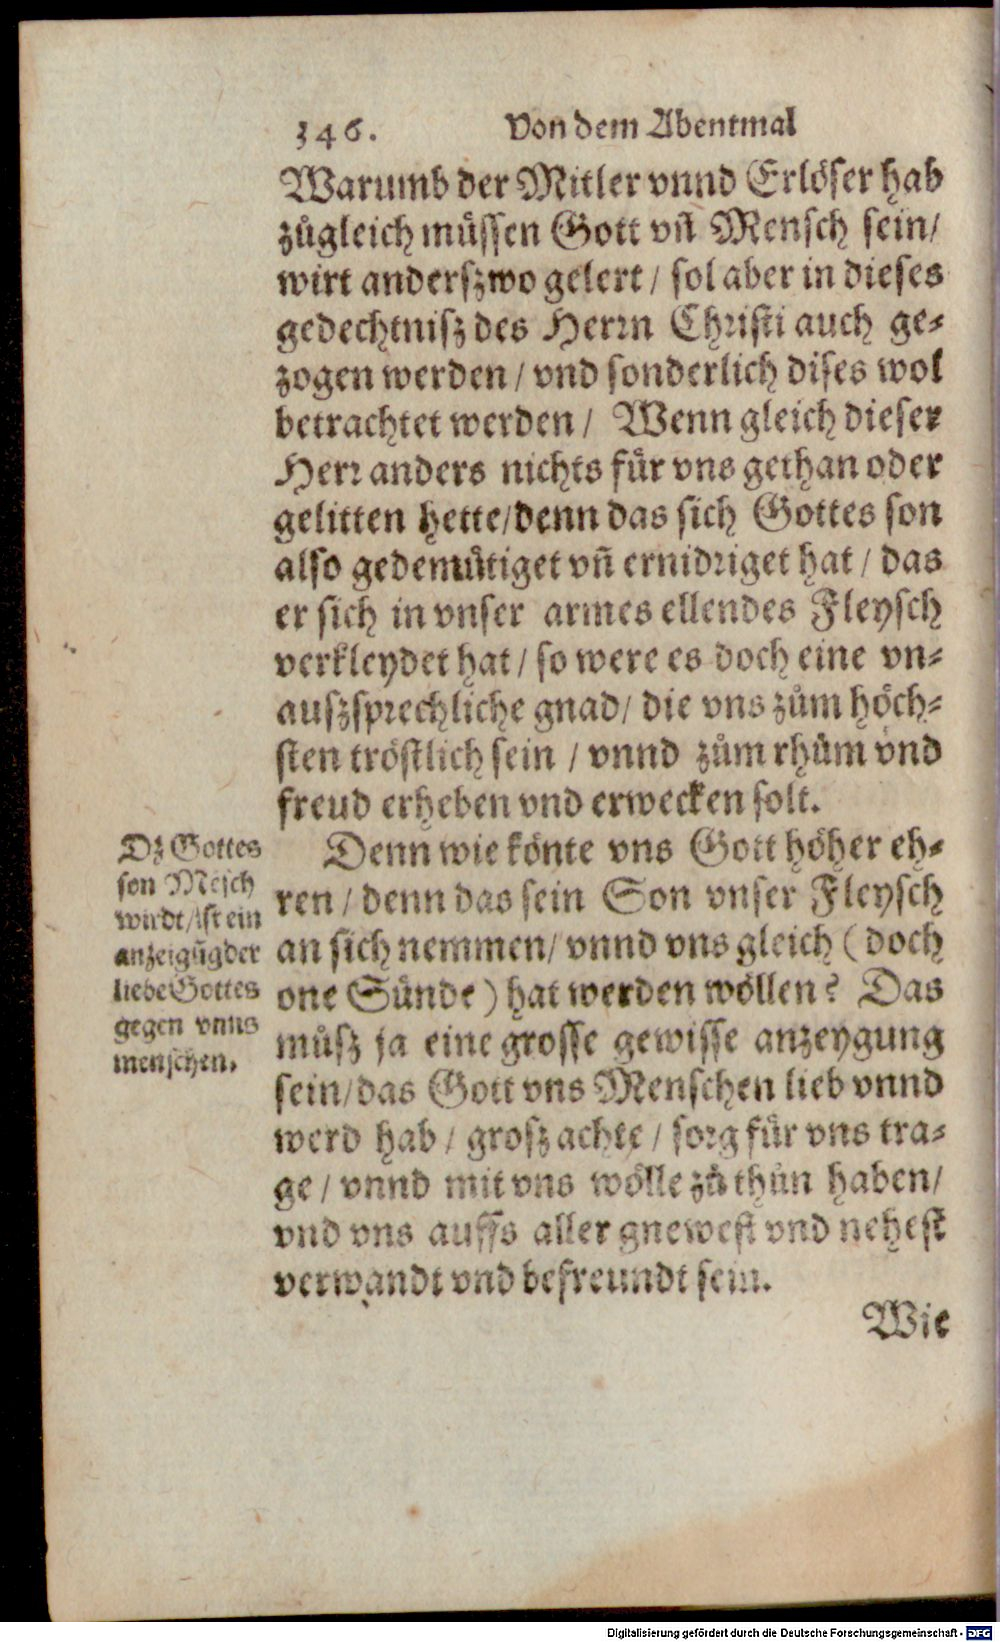 346. Von dem Abentmal
Warumb der Mitler vnnd Erlöser hab
zůgleich müssen Gott vñ Mensch sein/
wirt anderszwo gelert / sol aber in dieses
gedechtnisz des Herrn Christi auch ge-
zogen werden / vnd sonderlich dises wol
betrachtet werden / Wenn gleich dieser
Herr anders nichts für vns gethan oder
gelitten hette/denn das sich Gottes son
also gedemütiget vñ ernidriget hat / das
er sich in vnser armes ellendes Fleysch
verkleydet hat / so were es doch eine vn-
auszsprechliche gnad/ die vns zům höch-
sten tröstlich sein / vnnd zům rhům vnd
freud erheben vnd erwecken solt.
Dz Gottes
son Mēsch
wirdt/ist ein
anzeigūg der
liebe Gottes
gegen vnns
menschen.
Denn wie könte vns Gott höher eh-
ren / denn das sein Son vnser Fleysch
an sich nemmen/ vnnd vns gleich (doch
one Sünde) hat werden wöllen? Das
můsz ja eine grosse gewisse anzeygung
sein/das Gott vns Menschen lieb vnnd
werd hab / grosz achte / sorg für vns tra-
ge / vnnd mit vns wölle zů thůn haben/
vnd vns auffs aller gnewest vnd nehest
verwandt vnd befreundt sein.
Wie
Digitalisierung gefördert durch die Deutsche Forschungsgemeinschaft - DFG